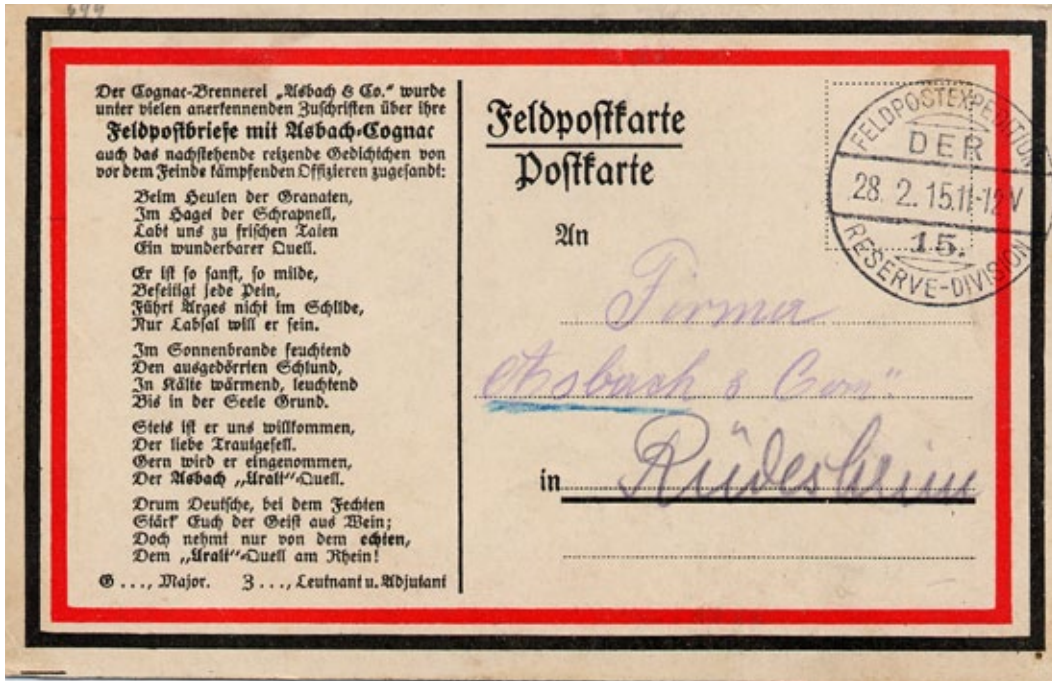 649
Der Cognac-Brennerei „Asbach & Co.“ wurde
unter vielen anerkennenden Zuschriften über ihre
Feldpostbriefe mit Asbach-Cognac
auch das nachstehende reizende Gedichtchen von
vor dem Feinde kämpfenden Offizieren zugesandt:
Beim Heulen der Granaten,
Im Hagel der Schrapnell,
Labt uns zu frischen Taten
Ein wunderbarer Quell.
Er ist so sanft, so milde,
Beseitigt jede Pein,
Führt Arges nicht im Schilde,
Nur Labsal will er sein.
Im Sonnenbrande feuchtend
Den ausgedörrten Schlund,
In Kälte wärmend, leuchtend
Bis in der Seele Grund.
Stets ist er uns willkommen,
Der liebe Trautgesell.
Gern wird er eingenommen,
Der Asbach „Uralt“-Quell.
Drum Deutsche, bei dem Fechten
Stärk' Euch der Geist aus Wein;
Doch nehmt nur von dem echten,
Dem „Uralt“-Quell am Rhein!
G ..., Major. Z ..., Leutnant u. Adjutant
Feldpostkarte
Postkarte
An
Firma
Asbach & Com"
in Rüdesheim
FELDPOSTEXPEDITION
DER
28. 2. 15. 11-12 V
15.
RESERVE-DIVISION